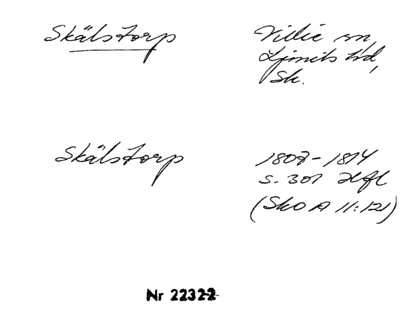 Skälstorp
Villie sn,
Ljunits hd,
Sk.
Skälstorp
1807-1814
s. 301 Hfl
(Sko A 11:121)
Nr 22322